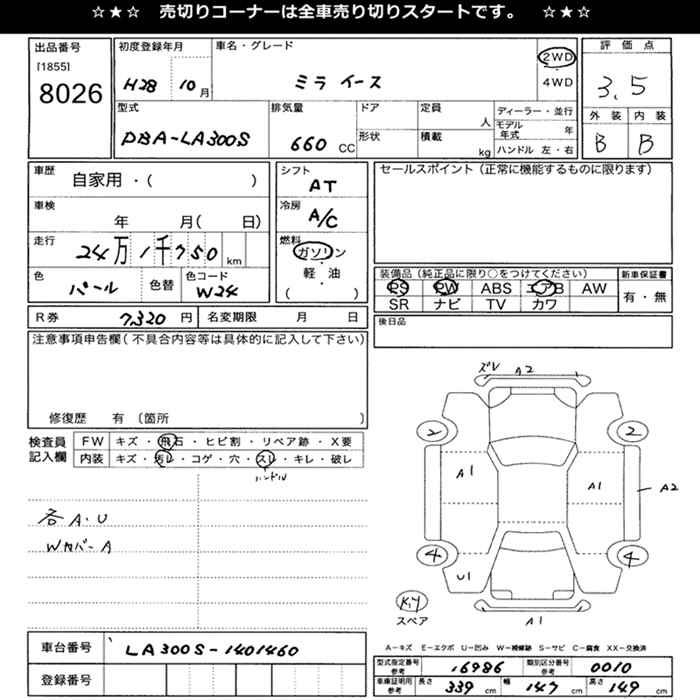 ☆★☆ 売切りコーナーは全車売り切りスタートです。 ☆★☆
出品番号 初度登録年月 車名・グレード 2WD 評価点
[1855] 8026 H28 10月 ミラ イース 4WD 3.5
型式 排気量 ドア 定員 人 ディーラー・並行 外装 内装
DBA-LA300S 660 CC 形状 積載 kg モデル年式 年 B B
ハンドル 左・右
車歴 自家用・( ) シフト AT セールスポイント(正常に機能するものに限ります)
車検 年 月( 日) 冷房 A/C
走行 24万1千750 km 燃料 ガソリン・軽・油 ( )
装備品(純正品に限り○をつけてください) 新車保証書
色 パール 色替 色コード W24 PS PW ABS エアB AW 有・無
SR ナビ TV カワ
R券 7,320 円 名変期限 月 日 後日品
注意事項申告欄(不具合内容等は具体的に記入して下さい)
修復歴 有 (箇所 )
検査員記入欄 FW キズ・飛石・ヒビ割・リペア跡・X要
内装 キズ・汚レ・コゲ・穴・スレ・キレ・破レ
ハンドル
各A・U
WカバーA
ズレ A2
2 2
A1 A1 A2
4 4
U1
スペア
A1
車台番号 LA300S-1401460
登録番号
A-キズ E-エクボ U-凹み W-補修跡 S-サビ C-腐食 XX-交換済
型式指定番号参考 16986 類別区分番号参考 0010
車庫証明用参考 長さ 339 cm 幅 147 cm 高さ 149 cm